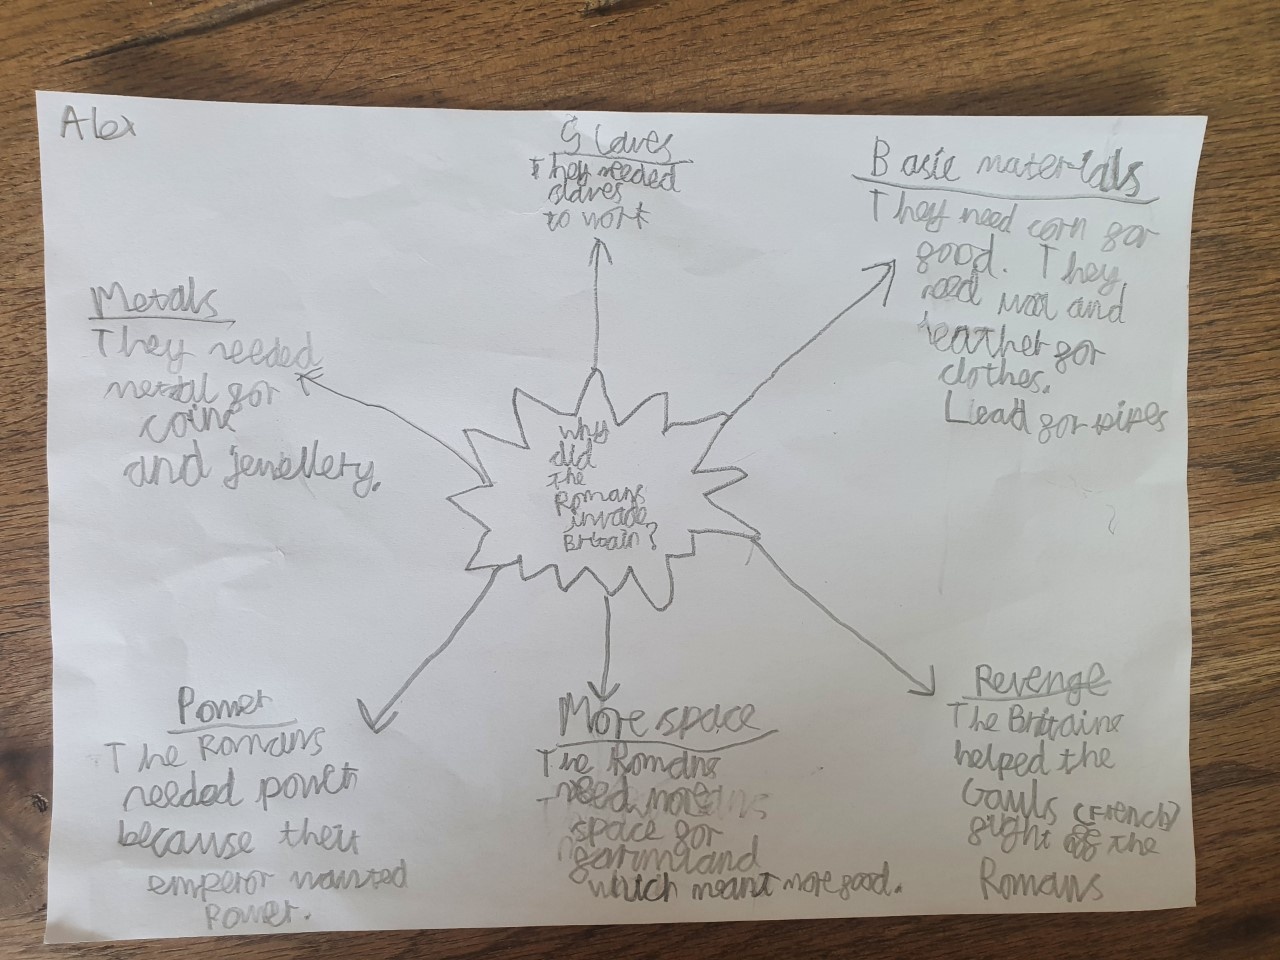 Alex
Slaves
They needed
slaves
to work
Basic materials
They need corn for
food. They
need wool and
leather for
clothes.
Liead for pipes
Metals
They needed
metal for
coins
and jewellery.
Why
did
the
Romans
invade
Britain?
Power
The Romans
needed power
because their
emperor wanted
Power.
More space
The Romans
need more
space for
farmland
which meant more food.
Revenge
The Britains
helped the
Gauls (French)
fight off the
Romans